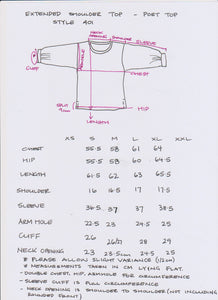 EXTENDED SHOULDER TOP - POET TOP
STYLE 401
NECK
OPENING
SHOULDER
SLEEVE
CUFF
CHEST
SLIT
9cm
HIP
LENGTH
XS S M L XL XXL
CHEST 55.5 58 61 64
HIP 55.5 58 60 64.5
LENGTH 61.5 62 63 65.5
SHOULDER 16 16.5 17.5
SLEEVE 36.5 37 37 38.5
ARM HOLE 22.5 23 24.5
CUFF 26 28 29
NECK OPENING 23 23.5cm 24.5 25
* PLEASE ALLOW SLIGHT VARIANCE (1/2cm)
* MEASUREMENTS TAKEN IN CM LYING FLAT.
- DOUBLE CHEST, HIP, ARMHOLE FOR CIRCUMFERENCE
- SLEEVE CUFF IS FULL CIRCUMFERENCE
- NECK OPENING IS SHOULDER TO SHOULDER (NOT INCLUDING
BINDED FRONT)